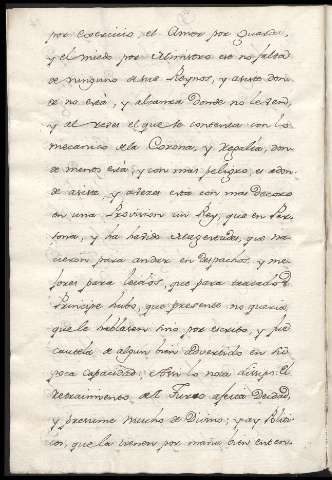 por exercicio el Amor por Guarda,
y el miedo por Ministro ese no falta
de ninguno de sus Reynos, y asiste don
de no está, y alcanza donde no le ven,
y al rebes el que se contenta con lo
mecanico de la Corona, y Regalia, don
de menos está, y con mas peligro, es adon
de asiste, y a veces esta con mas Decoro
en una Provision un Rey, que en Per
sona, y ha habido Magestades, que na
cieron para andar en despachos, y me
jores para leidos, que para tratados
Principe hubo, que presente no queria
que le hablasen sino por escrito, y fue
cautela de algun bien advertido en su
poca capacidad: Aun lo nota el
retraimiento del Turco afecta Deidad,
y presume mucho de Divino; y ay Politi
cos, que la tienen por maña bien enten